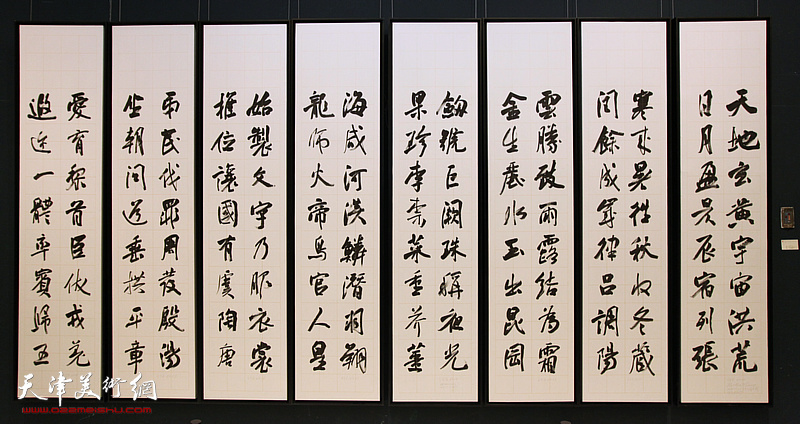 天地玄黃宇宙洪荒
日月盈昃辰宿列張
寒來暑往秋收冬藏
閏餘成歲律呂調陽
雲騰致雨露結為霜
金生麗水玉出昆岡
劒號巨闕珠稱夜光
果珍李柰菜重芥薑
海咸河淡鱗潛羽翔
龍师火帝鳥官人皇
始製文字乃服衣裳
推位讓國有虞陶唐
弔民伐罪周發殷湯
坐朝問道垂拱平章
愛育黎首臣伏戎羌
遐迩一體率賓歸王
天津美術網
www.022meishu.com